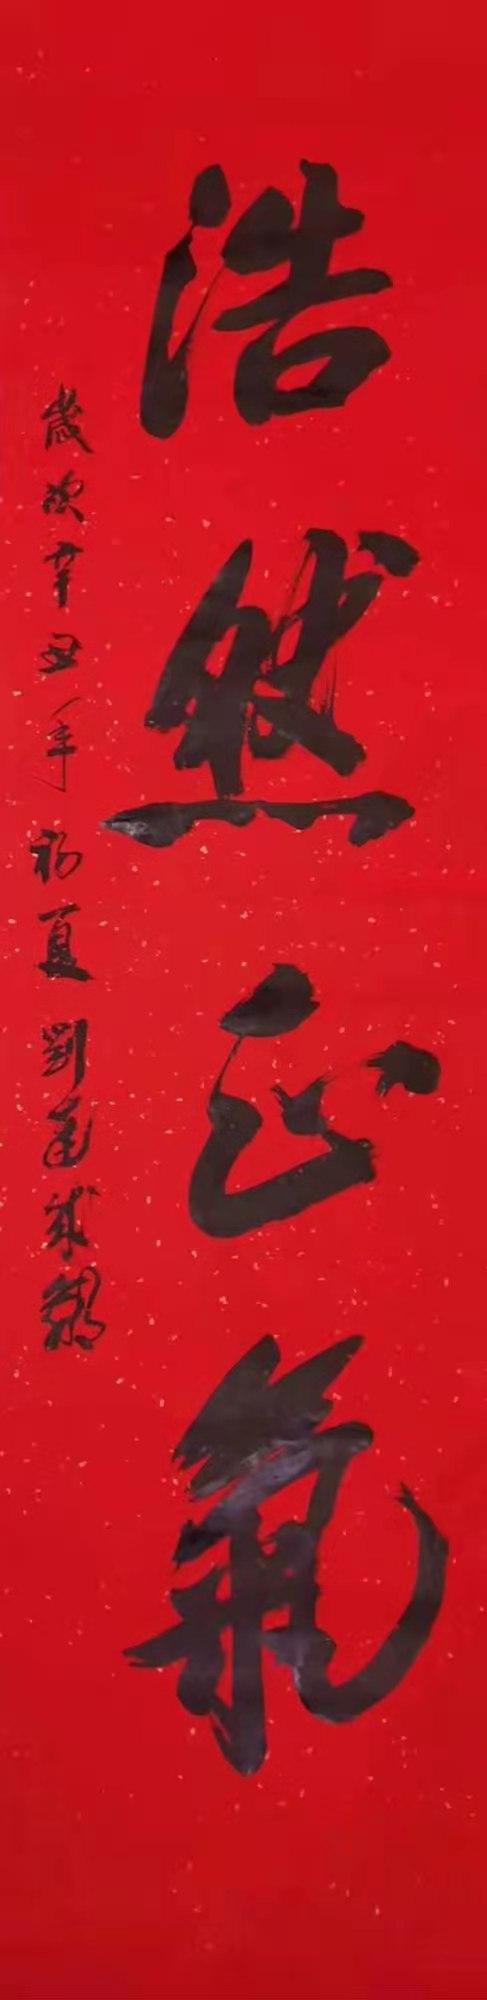 浩然正氣
歲次辛丑年初夏劉建成